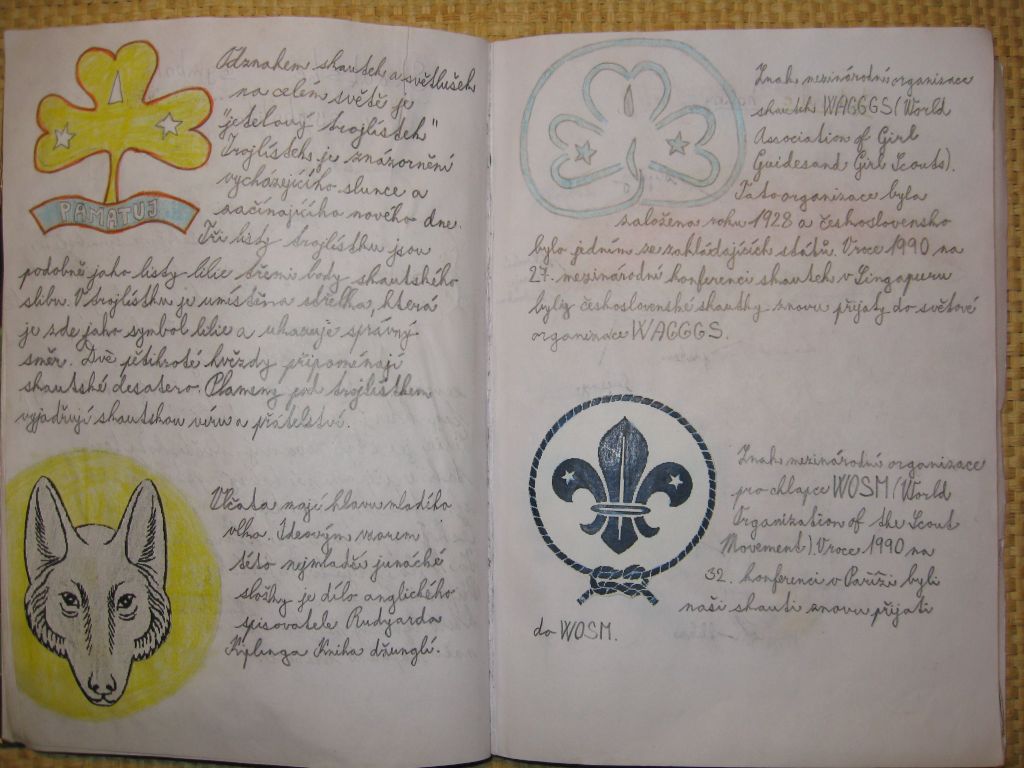 Odznakem skautek a světlušek
na celém světě je
"jetelový trojlístek"
Trojlístek je znázornění
vycházejícího slunce a
začínajícího nového dne.
PAMATUJ
Tři listy trojlístku jsou
podobně jako listy lilie třemi body skautského
slibu. V trojlístku je umístěna střelka, která
je zde jako symbol lilie a ukazuje správný
směr. Dvě pěticípé hvězdy připomínají
skautské desatero. Plameny pod trojlístkem
vyjadřují skautskou víru a přátelství.
Vlčata mají hlavu mladého
vlka. Ideovým vzorem
této nejmladší junácké
složky je dílo anglického
spisovatele Rudyarda
Kiplinga Kniha džunglí.
Znak mezinárodní organizace
skautek WAGGGS (World
Asociation of Girl
Guidesand Girl Scouts).
Tato organizace byla
založena roku 1928 a československo
bylo jedním ze zakládajících států. V roce 1990 na
27. mezinárodní konferenci skautek v Singapuru
byly československé skautky znovu přijaty do světové
organizace WAGGGS.
Znak mezinárodní organizace
pro chlapce WOSM (World
Organization of the Scout
Movement). V roce 1990 na
32. konferenci v Paříži byli
naši skauti znovu přijati
do WOSM.